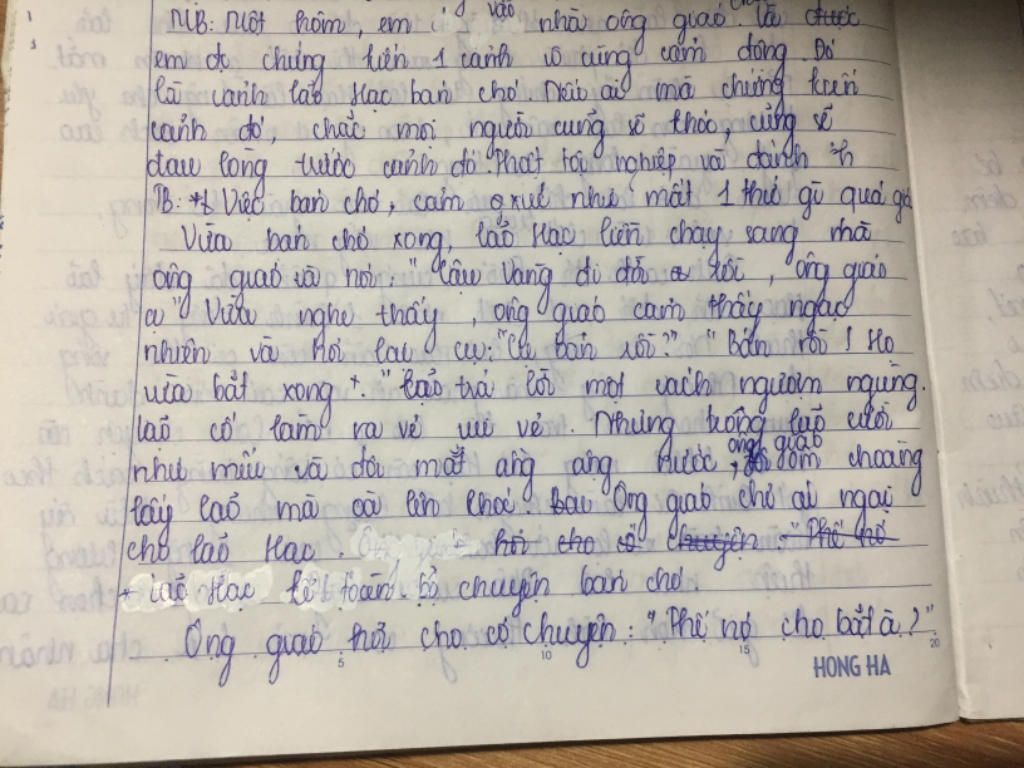 MB: Một hôm, em vào nhà ông giáo là được
em đc chứng kiến 1 cảnh vô cùng cảm động. Đó
là cảnh lão Hạc bán chó. Nếu ai mà chứng kiến
cảnh đó, chắc mọi người cũng sẽ khóc, cũng sẽ
đau lòng trước cảnh đó.
TB: Việc bán chó, cảm xúc như mất 1 thứ gì quá giá
Vừa bán chó xong, lão Hạc liền chạy sang nhà
ông giáo và nói: "Cậu Vàng đi đời rồi, ông giáo
ạ" Vừa nghe thấy, ông giáo cảm thấy ngạc
nhiên và hỏi lại cụ: "Cụ bán rồi?" "Bán rồi! Họ
vừa bắt xong". "Lão trả lời một cách ngượm ngùng.
Lão cố làm ra vẻ vui vẻ. Nhưng trông lão cười
như mếu và đôi mắt ầng ậng nước, ông giáo ôm choàng
lấy lão mà oà lên khóc. Ông giáo chỉ ái ngại
cho lão Hạc. hỏi cho có chuyện "Thế nó
+ Lão Hạc kể toàn bộ chuyện bán chó
Ông giáo hỏi cho có chuyện: "Thế nó cho bắt à?"
5 10 15 20
HONG HA